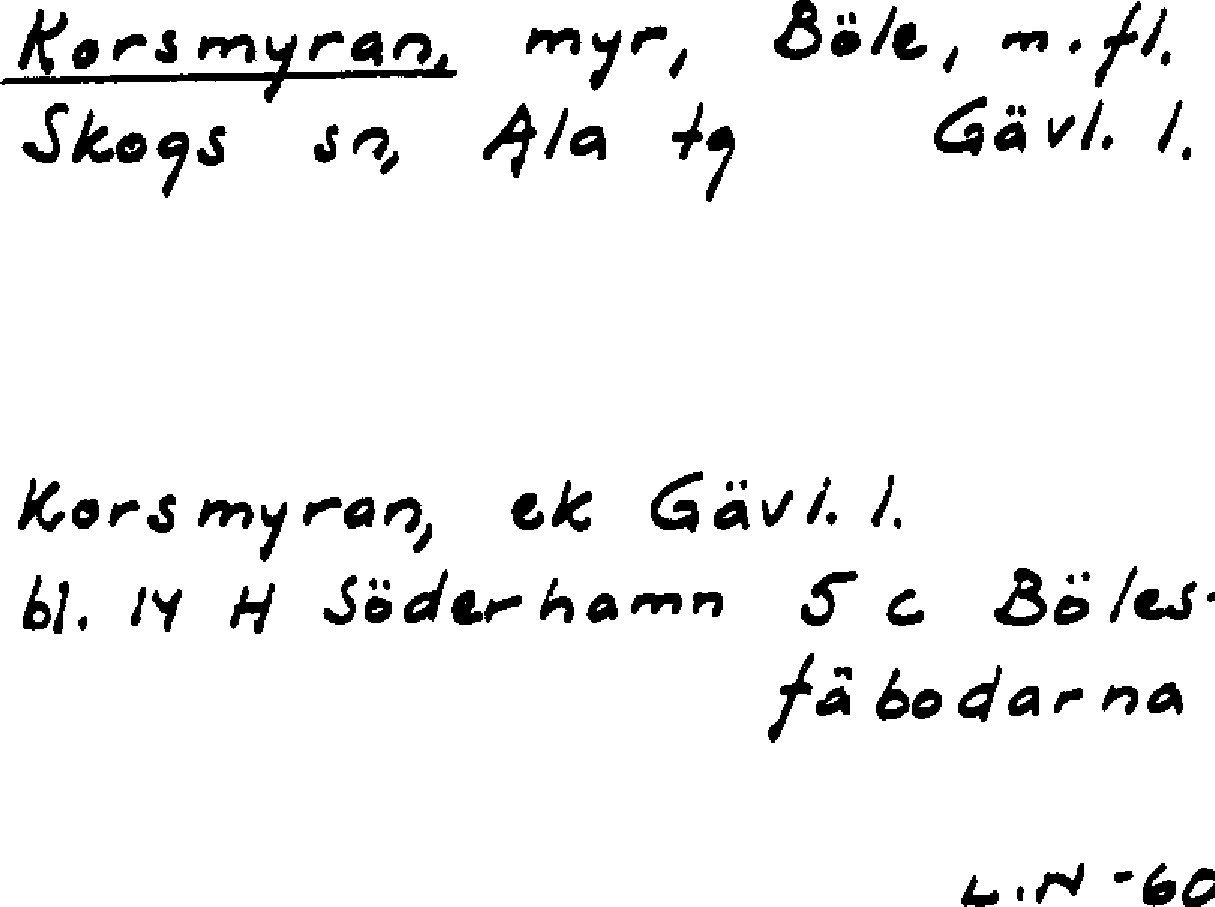 Korsmyran, myr, Böle, m.fl.
Skogs sn, Ala tg Gävl. l.
Korsmyran, ek Gävl. l.
bl. 14 H Söderhamn 5 c Böles-
fäbodarna
L.N -60